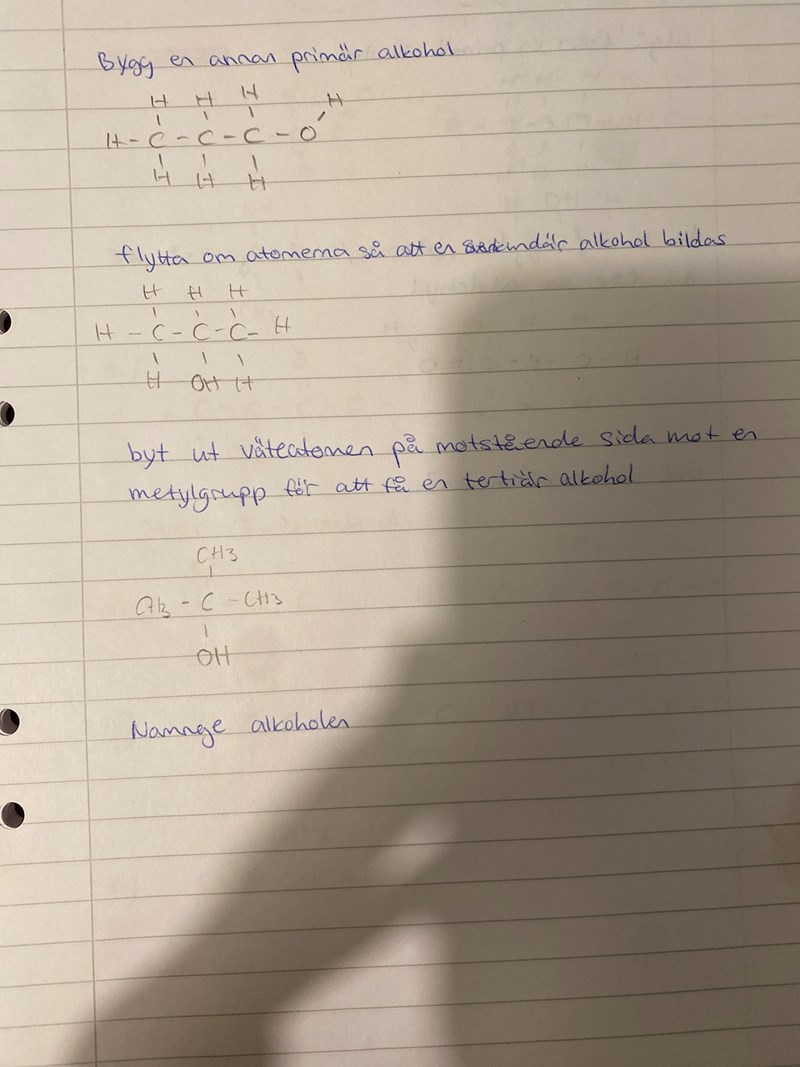 Bygg en annan primär alkohol
H H H H
H - C - C - C - O
H H H
flytta om atomerna så att en sekundär alkohol bildas
H H H
H - C - C - C - H
H OH H
byt ut väteatomen på motstående sida mot en
metylgrupp för att få en tertiär alkohol
CH3
CH3 - C - CH3
OH
Namnge alkoholen